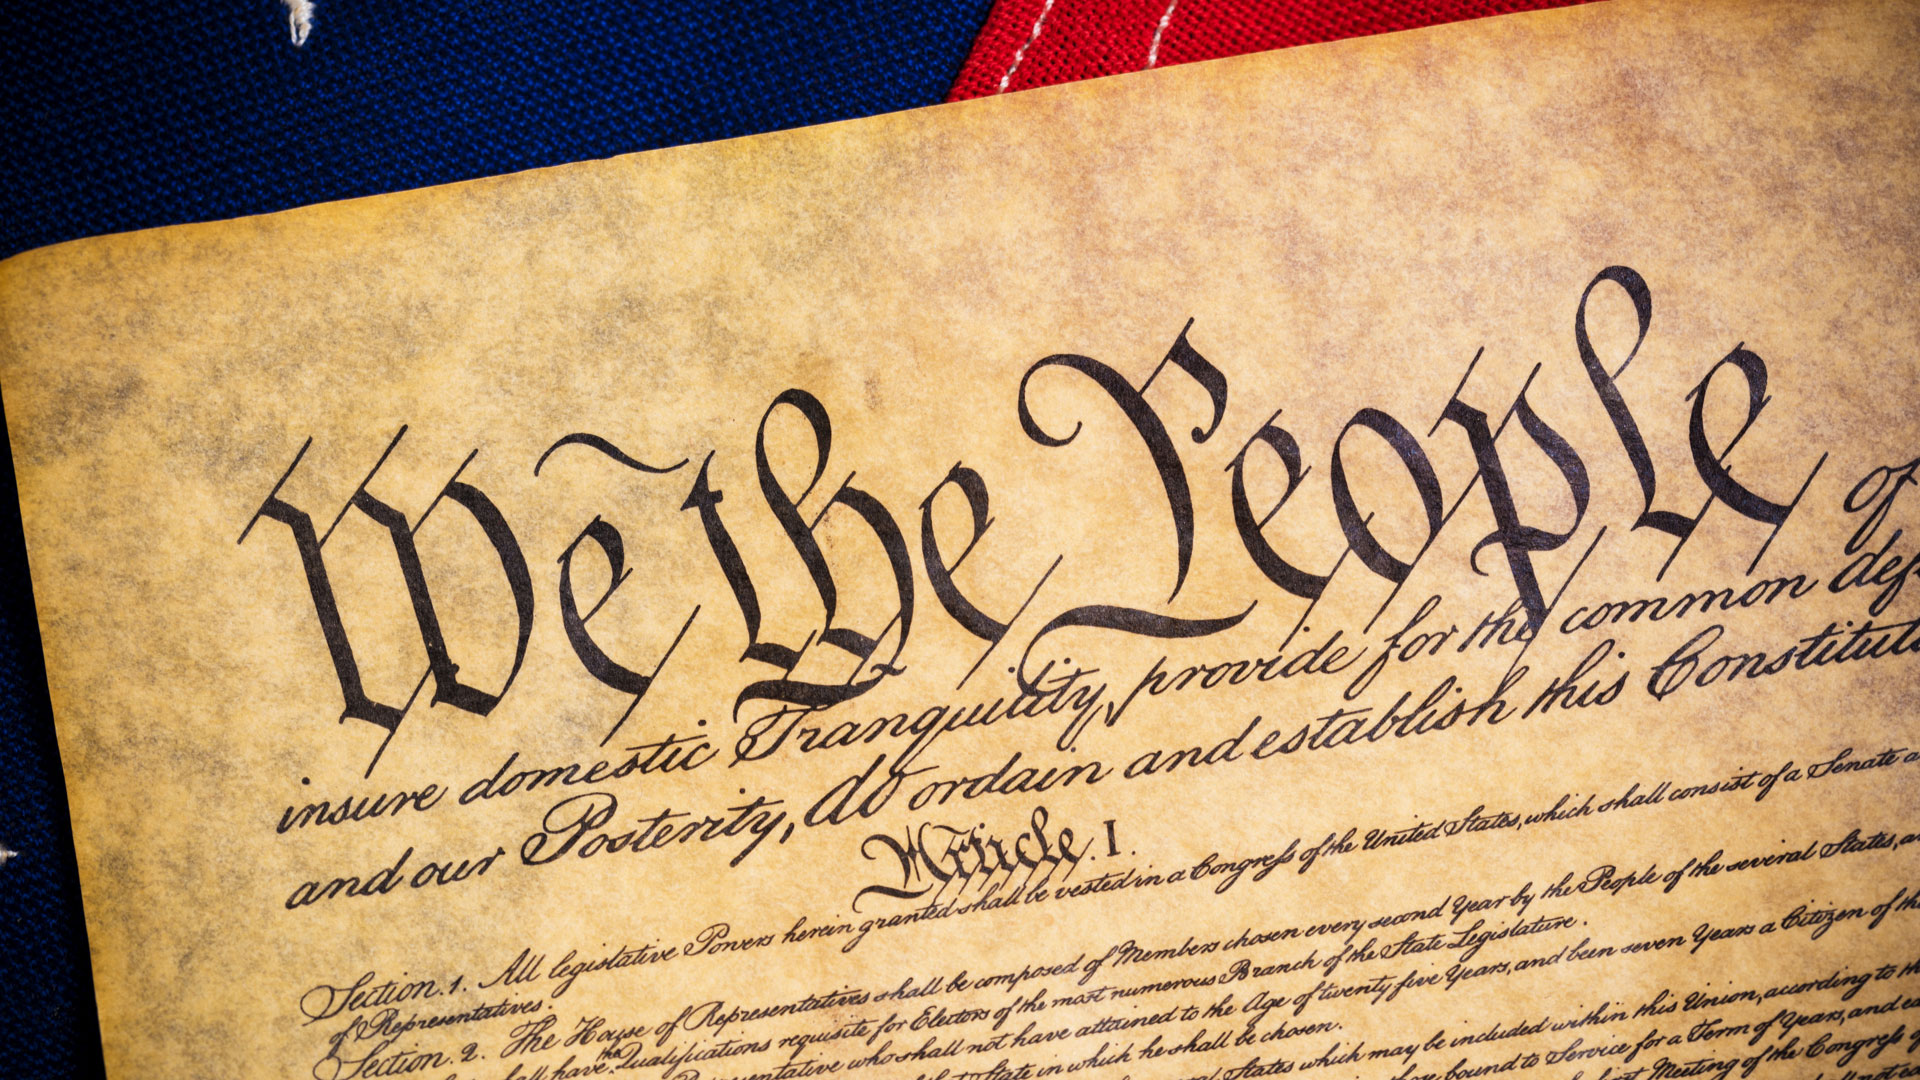 We the People of
insure domestic Tranquility, provide for the common def
and our Posterity, do ordain and establish this Constituti
Article. I.
Section. 1. All legislative Powers herein granted shall be vested in a Congress of the United States, which shall consist of a Senate a
of Representatives.
Section. 2. The House of Representatives shall be composed of Members chosen every second Year by the People of the several States, a
shall have the Qualifications requisite for Electors of the most numerous Branch of the State Legislature.
Representative who shall not have attained to the Age of twenty five Years, and been seven Years a Citizen of the
that State in which he shall be chosen.
States which may be included within this Union, according to the
bound to Service for a Term of Years, and
first Meeting of the Congress of